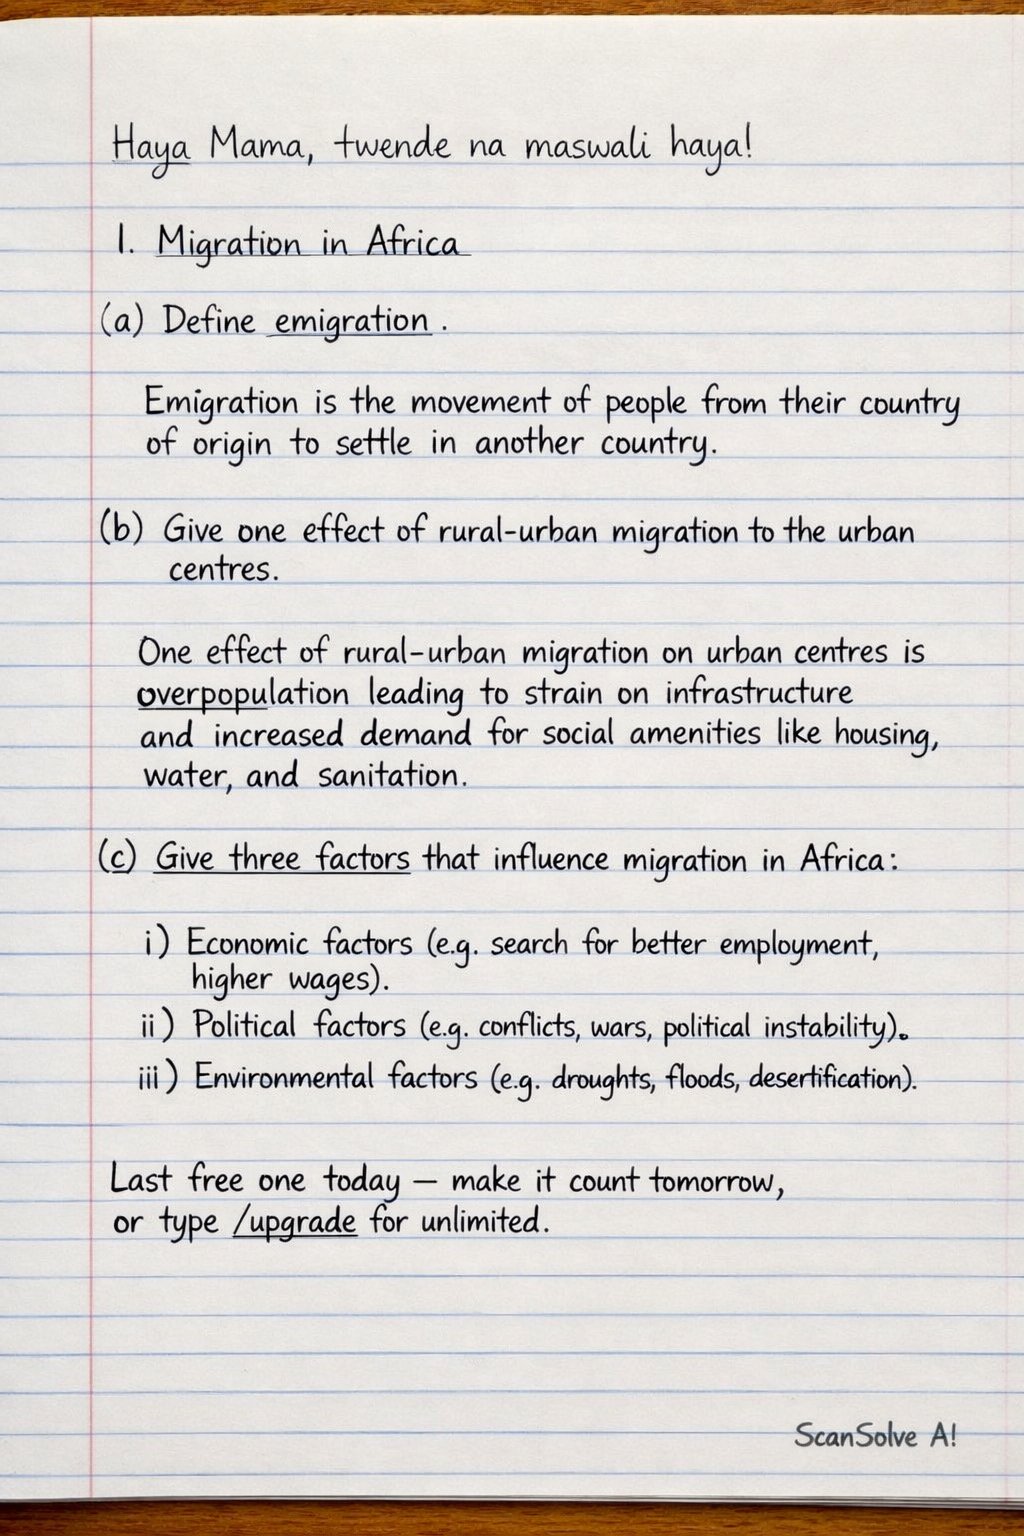 Haya Mama, twende na maswali haya!
1. Migration in Africa
(a) Define emigration.
Emigration is the movement of people from their country
of origin to settle in another country.
(b) Give one effect of rural-urban migration to the urban
centres.
One effect of rural-urban migration on urban centres is
overpopulation leading to strain on infrastructure
and increased demand for social amenities like housing,
water, and sanitation.
(c) Give three factors that influence migration in Africa:
i) Economic factors (e.g. search for better employment,
higher wages).
ii) Political factors (e.g. conflicts, wars, political instability).
iii) Environmental factors (e.g. droughts, floods, desertification).
Last free one today — make it count tomorrow,
or type /upgrade for unlimited.
ScanSolve A!